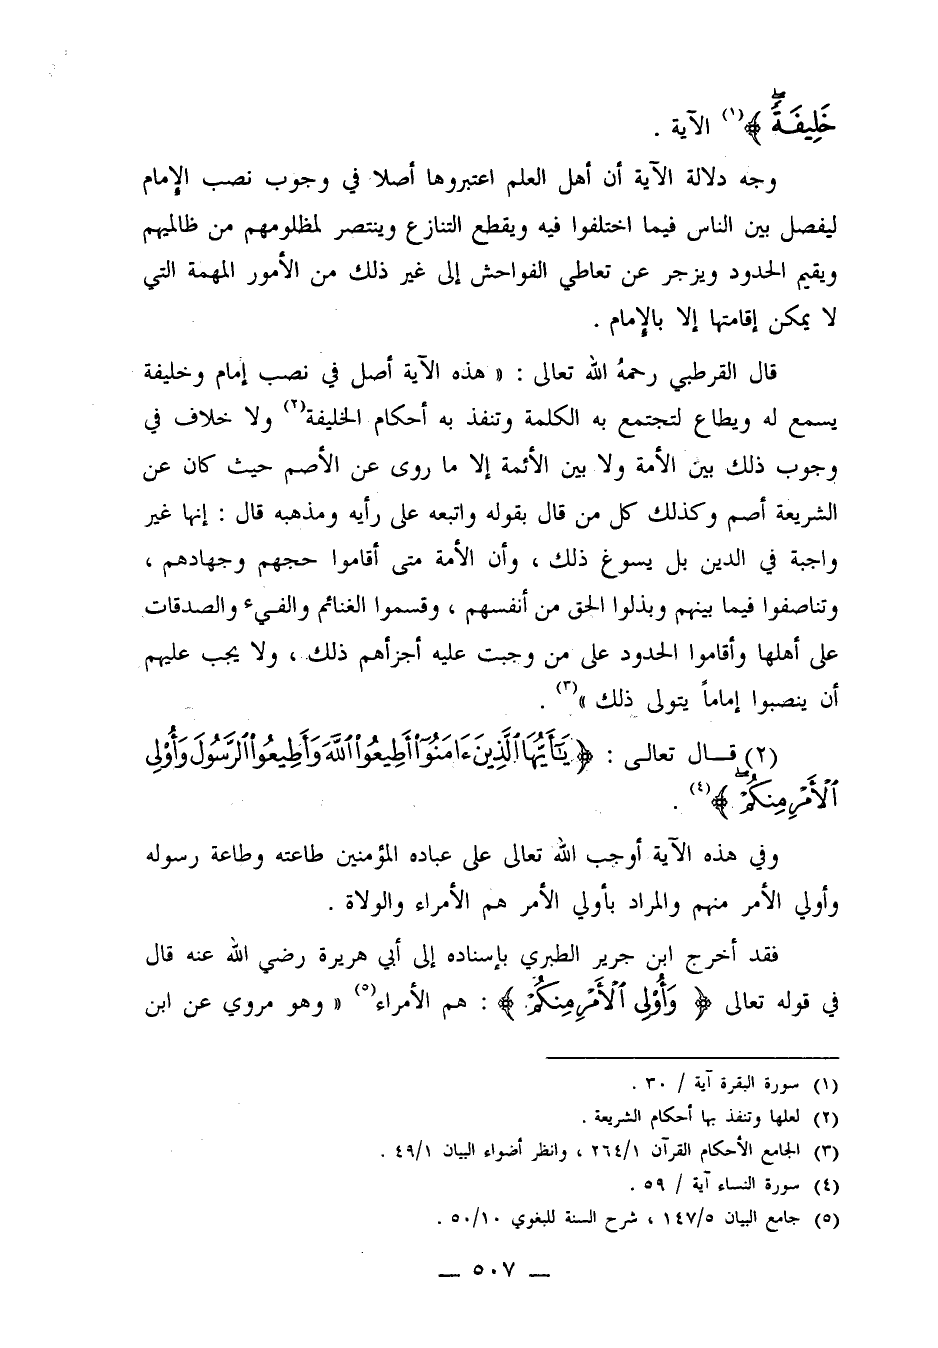 خَلِيفَةً ﴾(١) الآية .
وجه دلالة الآية أن أهل العلم اعتبروها أصلا في وجوب نصب الإمام
ليفصل بين الناس فيما اختلفوا فيه ويقطع التنازع وينتصر لمظلومهم من ظالميهم
ويقيم الحدود ويزجر عن تعاطي الفواحش إلى غير ذلك من الأمور المهمة التي
لا يمكن إقامتها إلا بالإمام .
قال القرطبي رحمهُ الله تعالى : « هذه الآية أصل في نصب إمام وخليفة
يسمع له ويطاع لتجتمع به الكلمة وتنفذ به أحكام الخليفة(٢) ولا خلاف في
وجوب ذلك بين الأمة ولا بين الأئمة إلا ما روى عن الأصم حيث كان عن
الشريعة أصم وكذلك كل من قال بقوله واتبعه على رأيه ومذهبه قال : إنها غير
واجبة في الدين بل يسوغ ذلك ، وأن الأمة متى أقاموا حجهم وجهادهم ،
وتناصفوا فيما بينهم وبذلوا الحق من أنفسهم ، وقسموا الغنائم والفيء والصدقات
على أهلها وأقاموا الحدود على من وجبت عليه أجزأهم ذلك ، ولا يجب عليهم
أن ينصبوا إماماً يتولى ذلك »(٣) .
(٢) قــال تعالـى : ﴿ يَٰٓأَيُّهَا ٱلَّذِينَ ءَامَنُوٓا۟ أَطِيعُوا۟ ٱللَّهَ وَأَطِيعُوا۟ ٱلرَّسُولَ وَأُو۟لِى
ٱلْأَمْرِ مِنكُمْ ۖ ﴾(٤) .
وفي هذه الآية أوجب الله تعالى على عباده المؤمنين طاعته وطاعة رسوله
وأولي الأمر منهم والمراد بأولي الأمر هم الأمراء والولاة .
فقد أخرج ابن جرير الطبري بإسناده إلى أبي هريرة رضي الله عنه قال
في قوله تعالى ﴿ وَأُو۟لِى ٱلْأَمْرِ مِنكُمْ ﴾ : هم الأمراء(٥) « وهو مروي عن ابن
(١) سورة البقرة آية / ٣٠ .
(٢) لعلها وتنفذ بها أحكام الشريعة .
(٣) الجامع الأحكام القرآن ٢٦٤/١ ، وانظر أضواء البيان ٤٩/١ .
(٤) سورة النساء آية / ٥٩ .
(٥) جامع البيان ١٤٧/٥ ، شرح السنة للبغوي ٥٠/١٠ .
— ٥٠٧ —